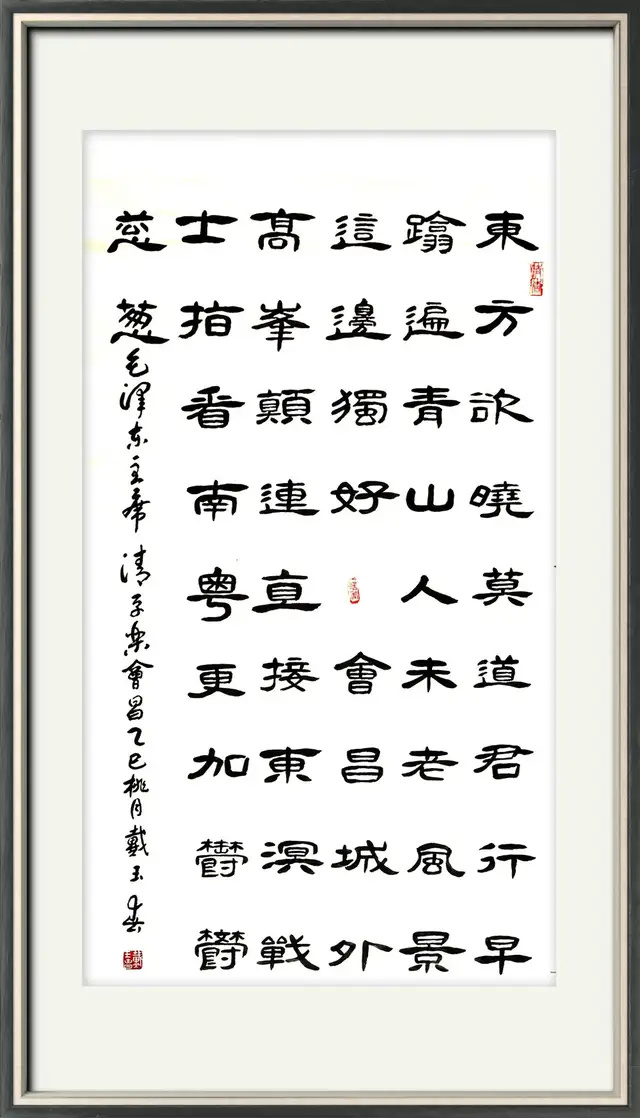 東方欲曉莫道君行早
蹹遍青山人未老風景
這邊獨好會昌城外
髙峯顛連直接東溟戰
士指看南粵更加欝欝
葱葱
毛澤东主席 清平樂會昌乙巳桃月戴玉春